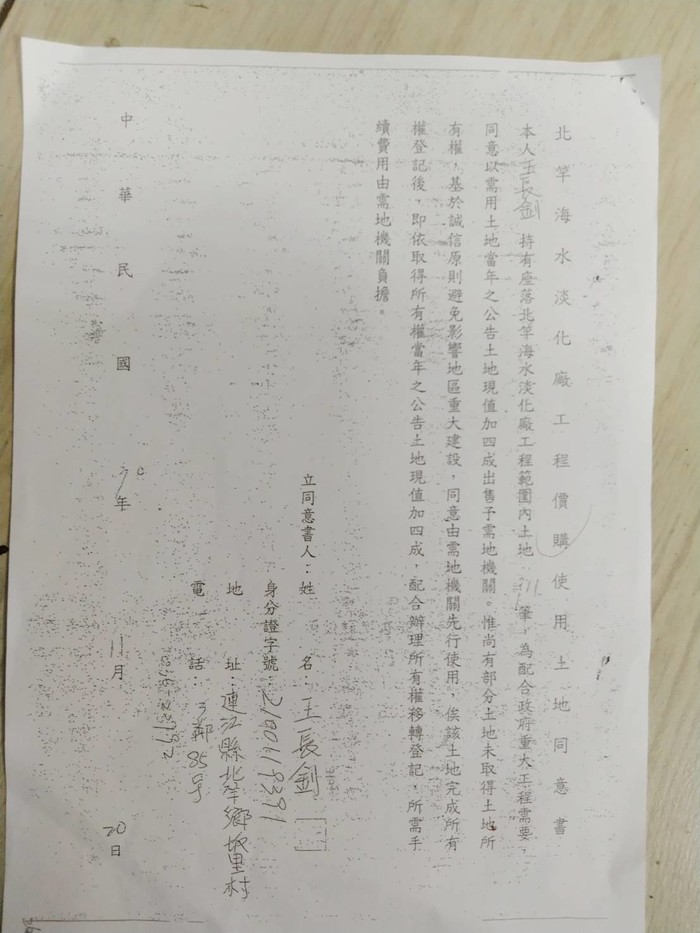 北竿海水淡化廠工程價購使用土地同意書
本人王長釗 持有座落北竿海水淡化廠工程範圍內土地 筆，為配合政府重大工程需要，
同意以需用土地當年之公告土地現值加四成出售予需地機關。惟尚有部分土地未取得土地所
有權，基於誠信原則避免影響地區重大建設，同意由需地機關先行使用，俟該土地完成所有
權登記後，即依取得所有權當年之公告土地現值加四成，配合辦理所有權移轉登記，所需手
續費用由需地機關負擔。
立同意書人：姓 名：王長釗
身分證字號：
地 址：連江縣北竿鄉坂里村
電 話：3鄰85号
中華民國 年 11月 20日